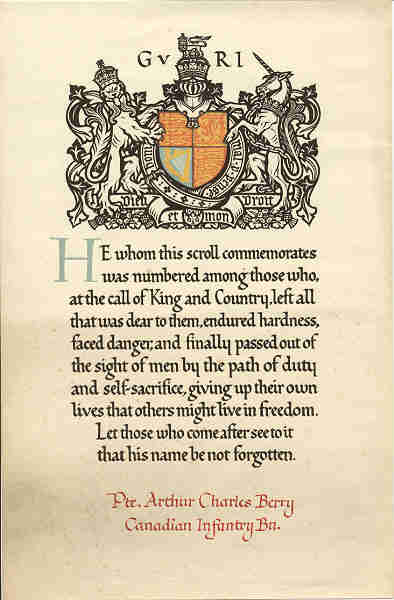 G V R I
Dieu et mon Droit
HE whom this scroll commemorates
was numbered among those who,
at the call of King and Country, left all
that was dear to them, endured hardness,
faced danger, and finally passed out of
the sight of men by the path of duty
and self-sacrifice, giving up their own
lives that others might live in freedom.
Let those who come after see to it
that his name be not forgotten.
Pte. Arthur Charles Berry
Canadian Infantry Bn.